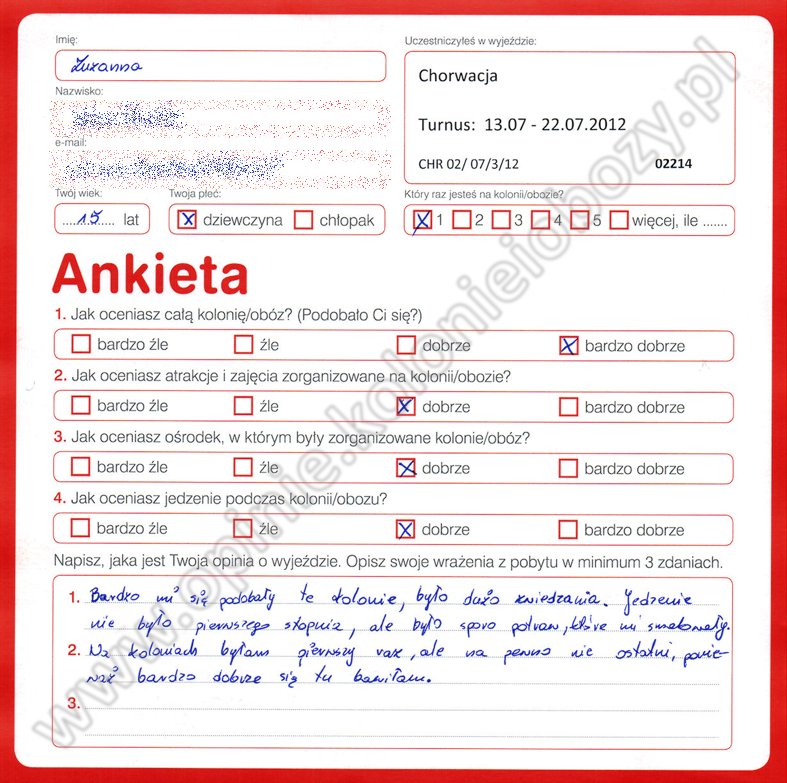 Imię:
Zuzanna
Uczestniczyłeś w wyjeździe:
Chorwacja
Turnus: 13.07 - 22.07.2012
CHR 02/ 07/3/12 02214
Nazwisko:
e-mail:
Twój wiek:
15 lat
Twoja płeć:
dziewczyna chłopak
Który raz jesteś na kolonii/obozie?
1 2 3 4 5 więcej, ile .......
Ankieta
1. Jak oceniasz całą kolonię/obóz? (Podobało Ci się?)
bardzo źle źle dobrze bardzo dobrze
2. Jak oceniasz atrakcje i zajęcia zorganizowane na kolonii/obozie?
bardzo źle źle dobrze bardzo dobrze
3. Jak oceniasz ośrodek, w którym były zorganizowane kolonie/obóz?
bardzo źle źle dobrze bardzo dobrze
4. Jak oceniasz jedzenie podczas kolonii/obozu?
bardzo źle źle dobrze bardzo dobrze
Napisz, jaka jest Twoja opinia o wyjeździe. Opisz swoje wrażenia z pobytu w minimum 3 zdaniach.
1. Bardzo mi się podobały te kolonie, było dużo zwiedzania. Jedzenie
nie było pierwszego stopnia, ale było sporo potraw, które mi smakowały.
2. Na koloniach byłam pierwszy raz, ale na pewno nie ostatni, ponie-
waż bardzo dobrze się tu bawiłam.
3.
www.opinie.kolonieiobozy.pl